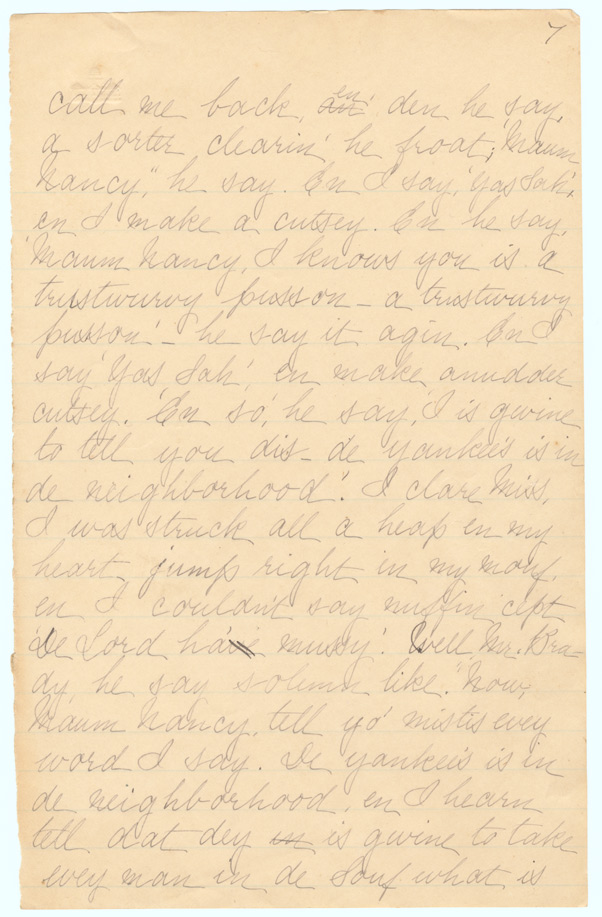 7
call me back, en den he say,
a sorter clearin' he froat; 'Maum
Nancy," he say. En I say, 'Yas Sah',
en I make a cuttsey. En he say,
'Maum Nancy, I knows you is a
trustwurvy pusson - a trustwurvy
pusson' - he say it agin. En I
say 'Yas Sah', en make anudder
cuttsey. 'En so', he say, 'I is gwine
to tell you dis - de yankees is in
de neighborhood'. I clare Miss,
I was struck all a heap en my
heart jump right in my mouf,
en I couldn't say nuffin' cept
'De Lord ha' mussy'. Well Mr. Bra-
dy, he say solemn like. "Now,
Maum Nancy, tell yo' mistis evey
word I say. De yankees is in
de neighborhood, en I hearn
tell dat dey is gwine to take
evey man in de Souf what is